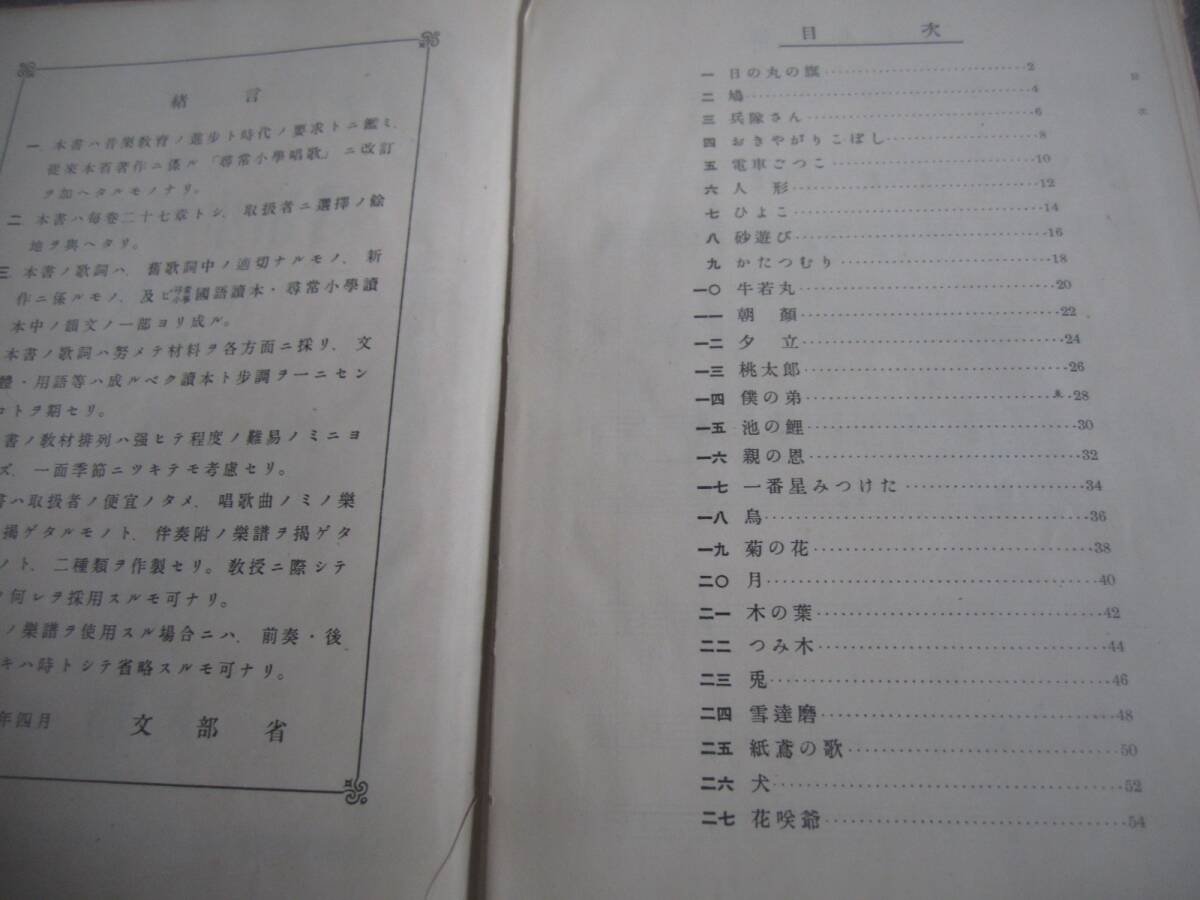 緒言
一 本書ハ音樂敎育ノ進步ト時代ノ要求トニ鑑ミ、
從來本省著作ニ係ル「尋常小學唱歌」ニ改訂
ヲ加ヘタルモノナリ。
二 本書ハ每卷二十七章トシ、取扱者ニ選擇ノ餘
地ヲ與ヘタリ。
三 本書ノ歌詞ハ、舊歌詞中ノ適切ナルモノ、新
作ニ係ルモノ、及ビ尋常小學國語讀本・尋常小學讀
本中ノ韻文ノ一部ヨリ成ル。
本書ノ歌詞ハ努メテ材料ヲ各方面ニ採リ、文
體・用語等ハ成ルベク讀本ト步調ヲ一ニセン
コトヲ期セリ。
書ノ敎材排列ハ强ヒテ程度ノ難易ノミニヨ
ズ、一面季節ニツキテモ考慮セリ。
書ハ取扱者ノ便宜ノタメ、唱歌曲ノミノ樂
揭ゲタルモノト、伴奏附ノ樂譜ヲ揭ゲタ
ノト、二種類ヲ作製セリ。敎授ニ際シテ
何レヲ採用スルモ可ナリ。
ノ樂譜ヲ使用スル場合ニハ、前奏・後
キハ時トシテ省略スルモ可ナリ。
年四月 文部省
目次
一 日の丸の旗 2
二 鳩 4
三 兵隊さん 6
四 おきやがりこぼし 8
五 電車ごつこ 10
六 人形 12
七 ひよこ 14
八 砂遊び 16
九 かたつむり 18
一〇 牛若丸 20
一一 朝顏 22
一二 夕立 24
一三 桃太郎 26
一四 僕の弟 28
一五 池の鯉 30
一六 親の恩 32
一七 一番星みつけた 34
一八 烏 36
一九 菊の花 38
二〇 月 40
二一 木の葉 42
二二 つみ木 44
二三 兎 46
二四 雪達磨 48
二五 紙鳶の歌 50
二六 犬 52
二七 花咲爺 54
目次